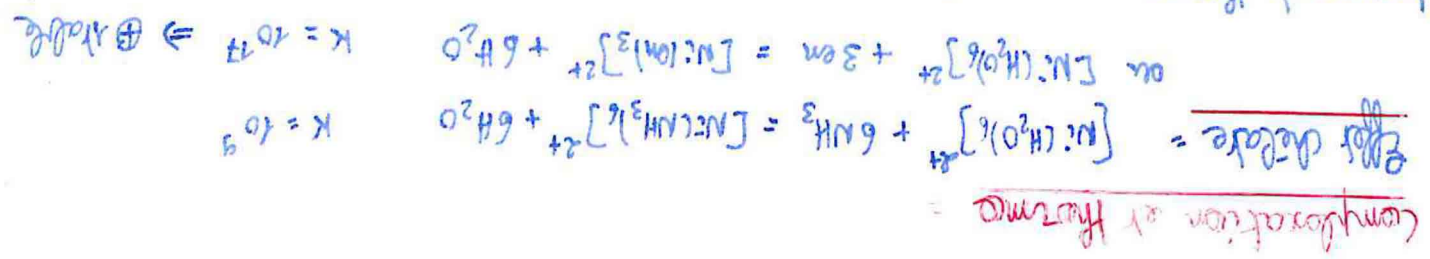 Complexation et thermo :
Effet chelate = [Ni(H₂O)₆]²⁺ + 6NH₃ = [Ni(NH₃)₆]²⁺ + 6H₂O K = 10⁹
ou [Ni(H₂O)₆]²⁺ + 3en = [Ni(en)₃]²⁺ + 6H₂O K = 10¹⁷ ⇒ ⊕ stable